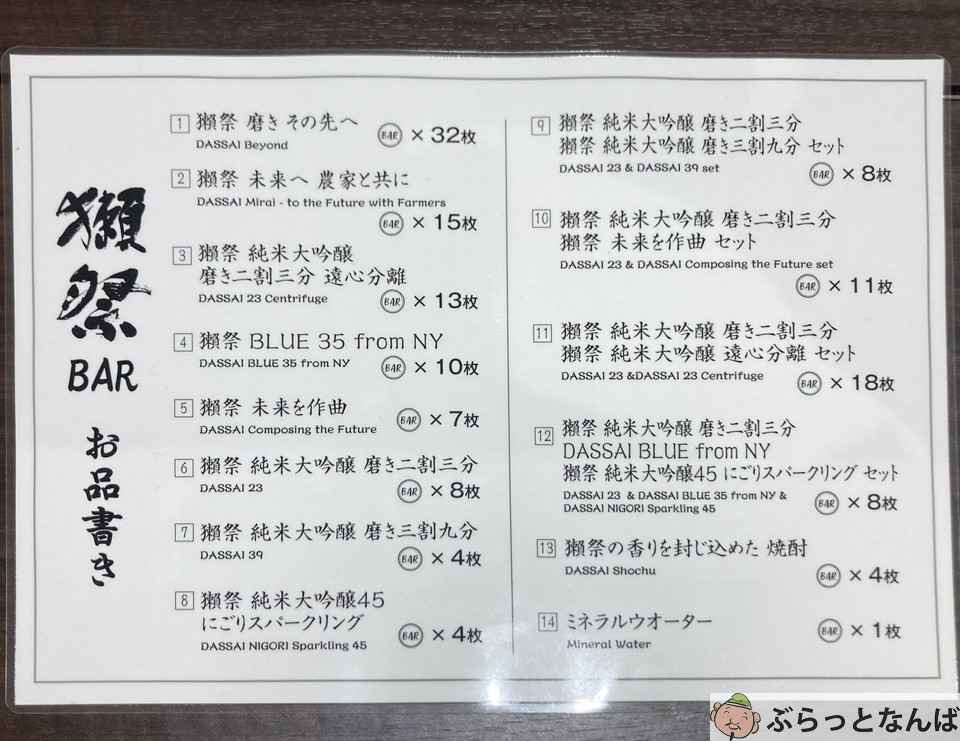 獺祭
BAR
お品書き
1 獺祭 磨き その先へ
DASSAI Beyond
BAR × 32枚
2 獺祭 未来へ 農家と共に
DASSAI Mirai - to the Future with Farmers
BAR × 15枚
3 獺祭 純米大吟醸
磨き二割三分 遠心分離
DASSAI 23 Centrifuge
BAR × 13枚
4 獺祭 BLUE 35 from NY
DASSAI BLUE 35 from NY
BAR × 10枚
5 獺祭 未来を作曲
DASSAI Composing the Future
BAR × 7枚
6 獺祭 純米大吟醸 磨き二割三分
DASSAI 23
BAR × 8枚
7 獺祭 純米大吟醸 磨き三割九分
DASSAI 39
BAR × 4枚
8 獺祭 純米大吟醸45
にごりスパークリング
DASSAI NIGORI Sparkling 45
BAR × 4枚
9 獺祭 純米大吟醸 磨き二割三分
獺祭 純米大吟醸 磨き三割九分 セット
DASSAI 23 & DASSAI 39 set
BAR × 8枚
10 獺祭 純米大吟醸 磨き二割三分
獺祭 未来を作曲 セット
DASSAI 23 & DASSAI Composing the Future set
BAR × 11枚
11 獺祭 純米大吟醸 磨き二割三分
獺祭 純米大吟醸 遠心分離 セット
DASSAI 23 &DASSAI 23 Centrifuge
BAR × 18枚
12 獺祭 純米大吟醸 磨き二割三分
DASSAI BLUE from NY
獺祭 純米大吟醸45 にごりスパークリング セット
DASSAI 23 & DASSAI BLUE 35 from NY &
DASSAI NIGORI Sparkling 45
BAR × 8枚
13 獺祭の香りを封じ込めた 焼酎
DASSAI Shochu
BAR × 4枚
14 ミネラルウオーター
Mineral Water
BAR × 1枚
ぶらっとなんば